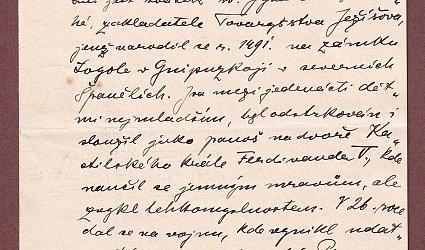 hé, zakladatele Tovaryšstva Ježíšova,
jenž narodil se r. 1491. na zámku
Loyole v Guipuzkoji v severních
Španělích. Jsa mezi jedenácti dět-
mi nejmladším, byl odstrkován i
sloužil jako panoš na dvoře Ka-
stilského krále Ferdinanda V., kde
naučil se jemným mravům, ale
zvykl lehkomyslnostem. V 26. roce
dal se na vojnu, kde vynikl udat-